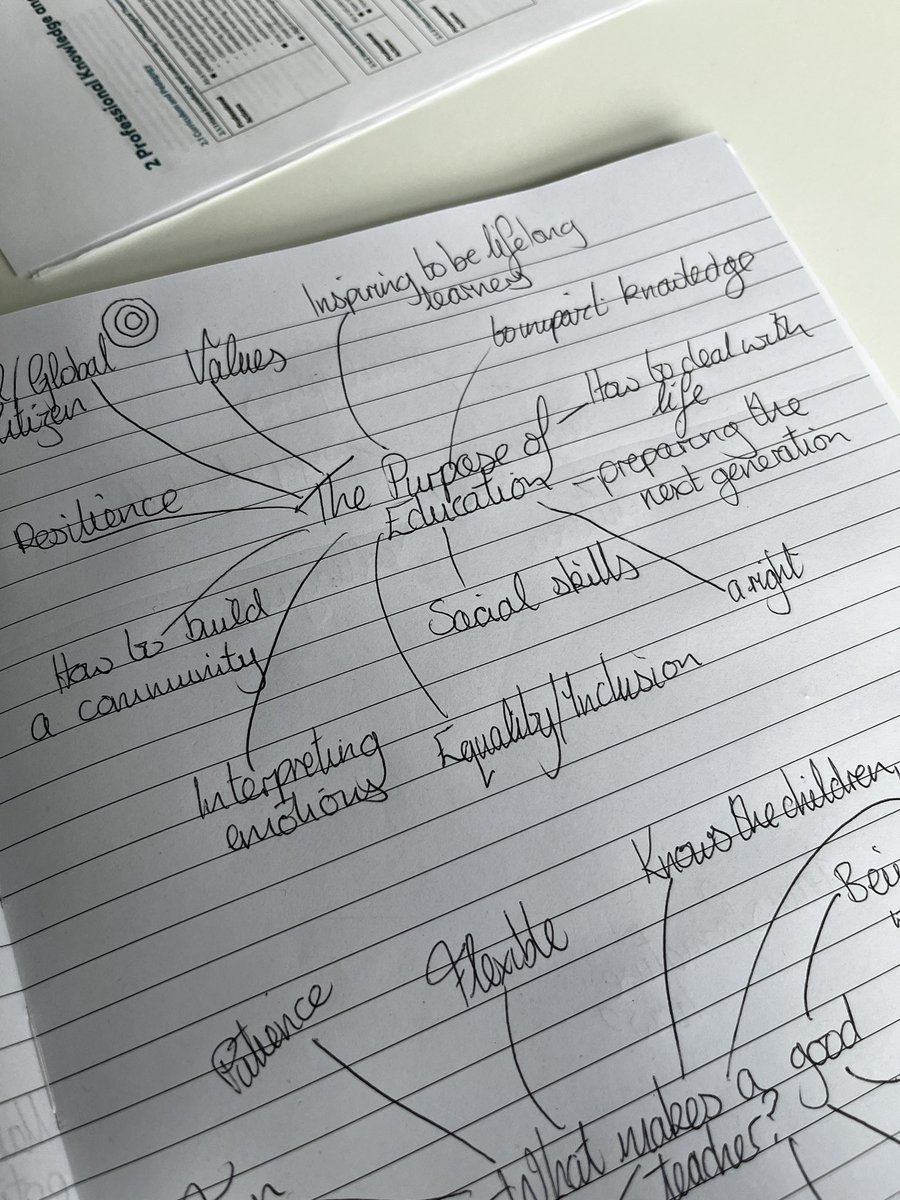 2 Professional Knowledge and
Inspiring to be lifelong
learners
to impart knowledge
/Global
Citizen
Values
How to deal with
life
The Purpose of
Education
- preparing the
next generation
Resilience
Social skills
a right
How to build
a community
Equality/Inclusion
Interpreting
emotions
Knows the children,
Flexible
Patience
What makes a good
teacher?